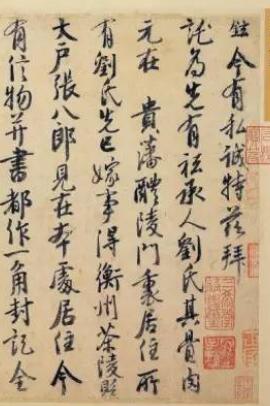 鉉今有私誠特茲拜
託為先有祗承人劉氏其骨肉
元在 貴藩醴陵門裏居住所
有劉氏先已嫁事得衡州茶陵縣
大戶張八郎見在本處居住今
有信物并書都作一角封記全